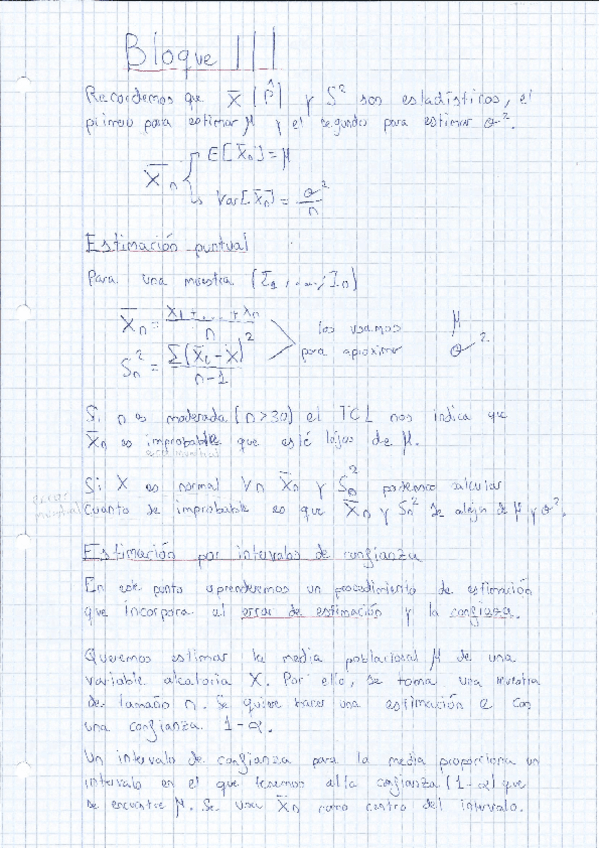 Bloque III
Recordemos que X̄ (P̂) y S² son estadísticos, el
primero para estimar μ y el segundo para estimar σ².
X̄n
E[X̄n] = μ
Var[X̄n] = σ²/n
Estimación puntual
Para una muestra (X1, ..., Xn)
X̄n = X1 + ... + Xn / n
los usamos para aproximar μ σ²
Sn² = Σ(Xi - X̄)² / n-1
Si n es moderada (n>30) el TCL nos indica que
X̄n es improbable que esté lejos de μ.
Si X es normal ∀n X̄n y Sn² podemos calcular
cuanto de improbable es que X̄n y Sn² se alejen de μ y σ².
Estimación por intervalos de confianza
En este punto aprenderemos un procedimiento de estimación
que incorpora el error de estimación y la confianza.
Queremos estimar la media poblacional μ de una
variable aleatoria X. Por ello, se toma una muestra
de tamaño n. Se quiere hacer una estimación e con
una confianza 1-α.
Un intervalo de confianza para la media proporciona un
intervalo en el que tenemos alta confianza (1-α) que
se encuentre μ. Se usa X̄n como centro del intervalo.